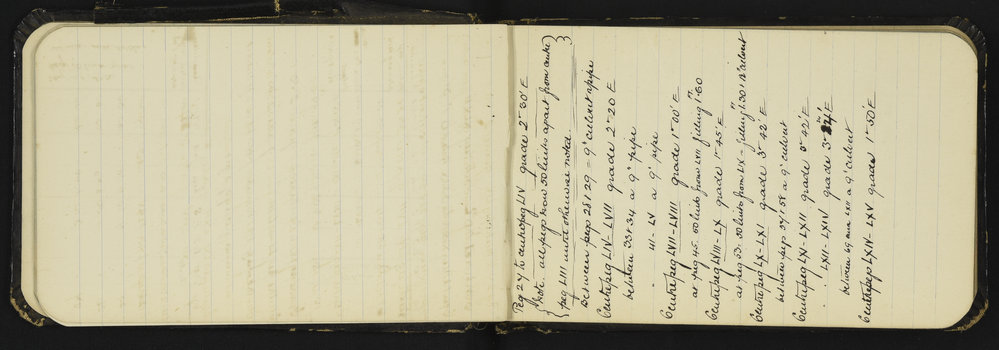 Peg 27 to centrepeg LIV grade 2° 30' E
{Note. all pegs now 50 links apart from centre}
{peg LIII until otherwise noted.}
Between pegs 28 & 29 - 9" culvert pipe
Centrepeg LIV - LVII grade 2° 20 E
between 33 & 34 a 9" pipe
41 - LV a 9" pipe
Centrepeg LVII - LVIII grade 1° 00' E
at peg 45. 50 links from LVII filling 1.60
Centrepeg LVIII - LX grade 1° 45' E
at peg 53. 50 links from LIX filling 1.30 & 12" culvert
Centrepeg LX - LXI grade 3° 42' E
between pegs 57 & 58 a 9" culvert
Centrepeg LX - LXII grade 3° 42' E
" LXII - LXIV grade 3° E
between 69 and LXII a 9" culvert
Centrepegs LXIV - LXV grade 1° 50' E